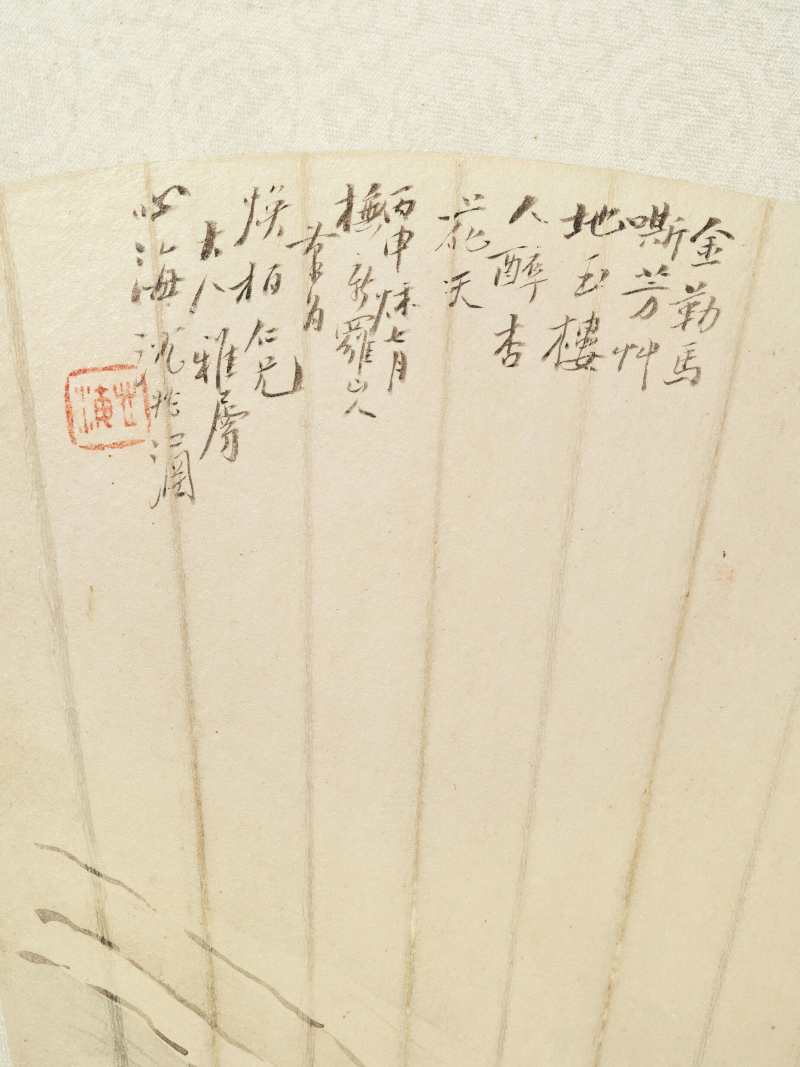 金勒馬
嘶芳艸
地玉樓
人醉杏
花天
丙申秋七月
橅新羅山人
筆爲
煥栢仁兄
大人雅屬
四海沈兆涵